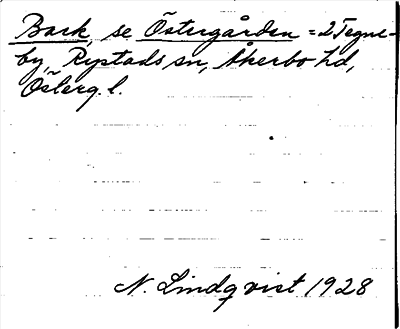 Bark, se Östergården = 2 Tegne-
by, Rystads sn, Åkerbo hd,
Österg. l.
N. Lindqvist 1928